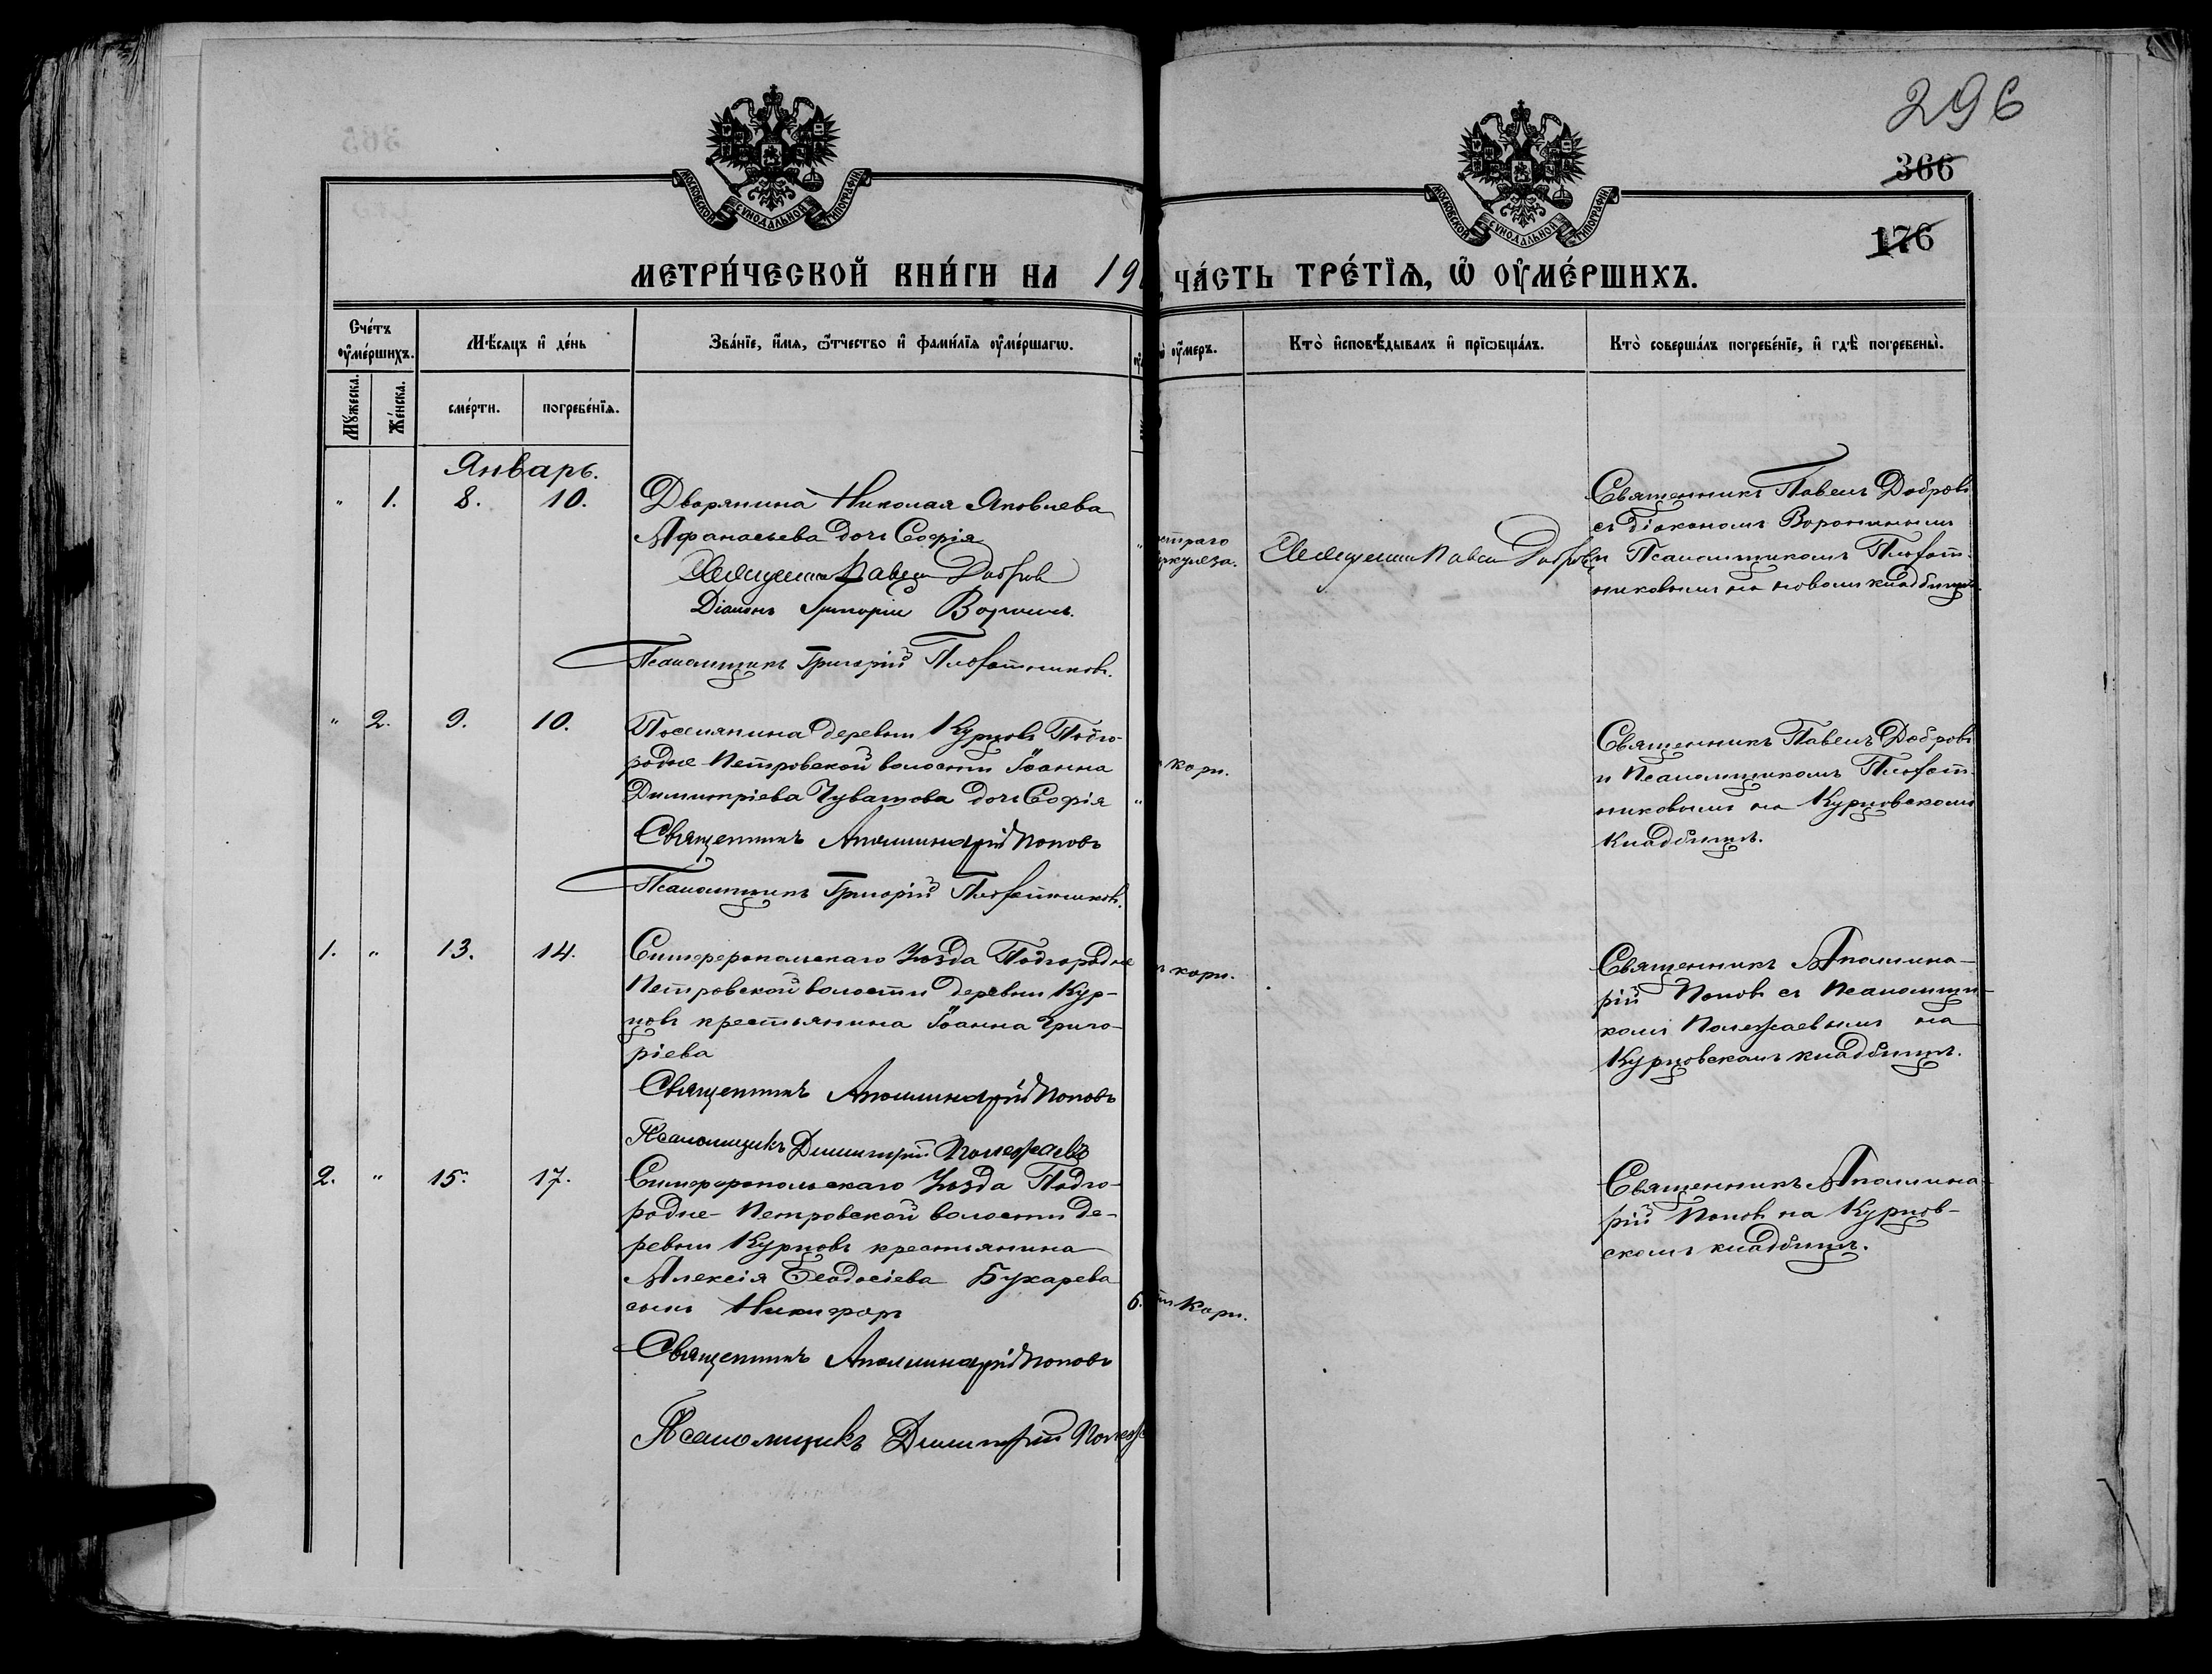 296
366
176
МОСКОВСКОЙ СѴНОДАЛЬНОЙ ТИПОГРАФІИ
МОСКОВСКОЙ СѴНОДАЛЬНОЙ ТИПОГРАФІИ
МЕТРИ́ЧЕСКОЙ КНИ́ГИ НА 19
ЧА́СТЬ ТРЕ́ТЇѦ, Ѡ҆ ОУ҆МЕ́РШИХЪ.
Сче́тъ оу҆ме́ршихъ.
Мѣ́сяцъ и҆ де́нь
Зва́нїе, и҆́мя, ѻ҆́тчество и҆ фами́лїя оу҆ме́ршагѡ.
оу҆́меръ.
Кто̀ и҆сповѣ́дывалъ и҆ прїѡбща́лъ.
Кто̀ соверша́лъ погребе́нїе, и҆ гдѣ̀ погребены̀.
Мꙋ́жеска.
Же́нска.
сме́рти.
погребе́нїѧ.
Январь.
" 1. 8. 10.
Дворянина Николая Яковлева
Афанасьева дочь Софія
Священникъ Павелъ Добровъ
Діаконъ Григорій Воронинъ.
Псаломщикъ Григорій Плохотниковъ.
остраго
Священникъ Павелъ Добровъ
Священникъ Павелъ Добровъ
съ діакономъ Воронинымъ
и Псаломщикомъ Плохот-
никовымъ на новомъ кладбищѣ
" 2. 9. 10.
Поселянина деревни Курцовъ Подго-
родне-Петровской волости Іоанна
Димитріева Чуватова дочь Софія "
Священникъ Аполлинарій Поповъ
Псаломщикъ Григорій Плохотниковъ.
кори.
Священникъ Павелъ Добровъ
и Псаломщикомъ Плохот-
никовымъ на Курцовскомъ
кладбищѣ.
1. " 13. 14.
Симферопольскаго Уѣзда Подгородне
Петровской волости деревни Кур-
цовъ крестьянина Іоанна Григо-
ріева
Священникъ Аполлинарій Поповъ
Псаломщикъ Димитрій Полежаевъ
кори.
Священникъ Аполлина-
рій Поповъ съ Псаломщи-
комъ Полежаевымъ на
Курцовскомъ кладбищѣ.
2. " 15. 17.
Симферопольскаго Уѣзда Подго-
родне-Петровской волости де-
ревни Курцовъ крестьянина
Алексія Ѳеодосіева Бухарева
сынъ Никифоръ 6.
Священникъ Аполлинарій Поповъ
Псаломщикъ Димитрій Полеж
кори.
Священникъ Аполлина-
рій Поповъ на Курцов-
скомъ кладбищѣ.